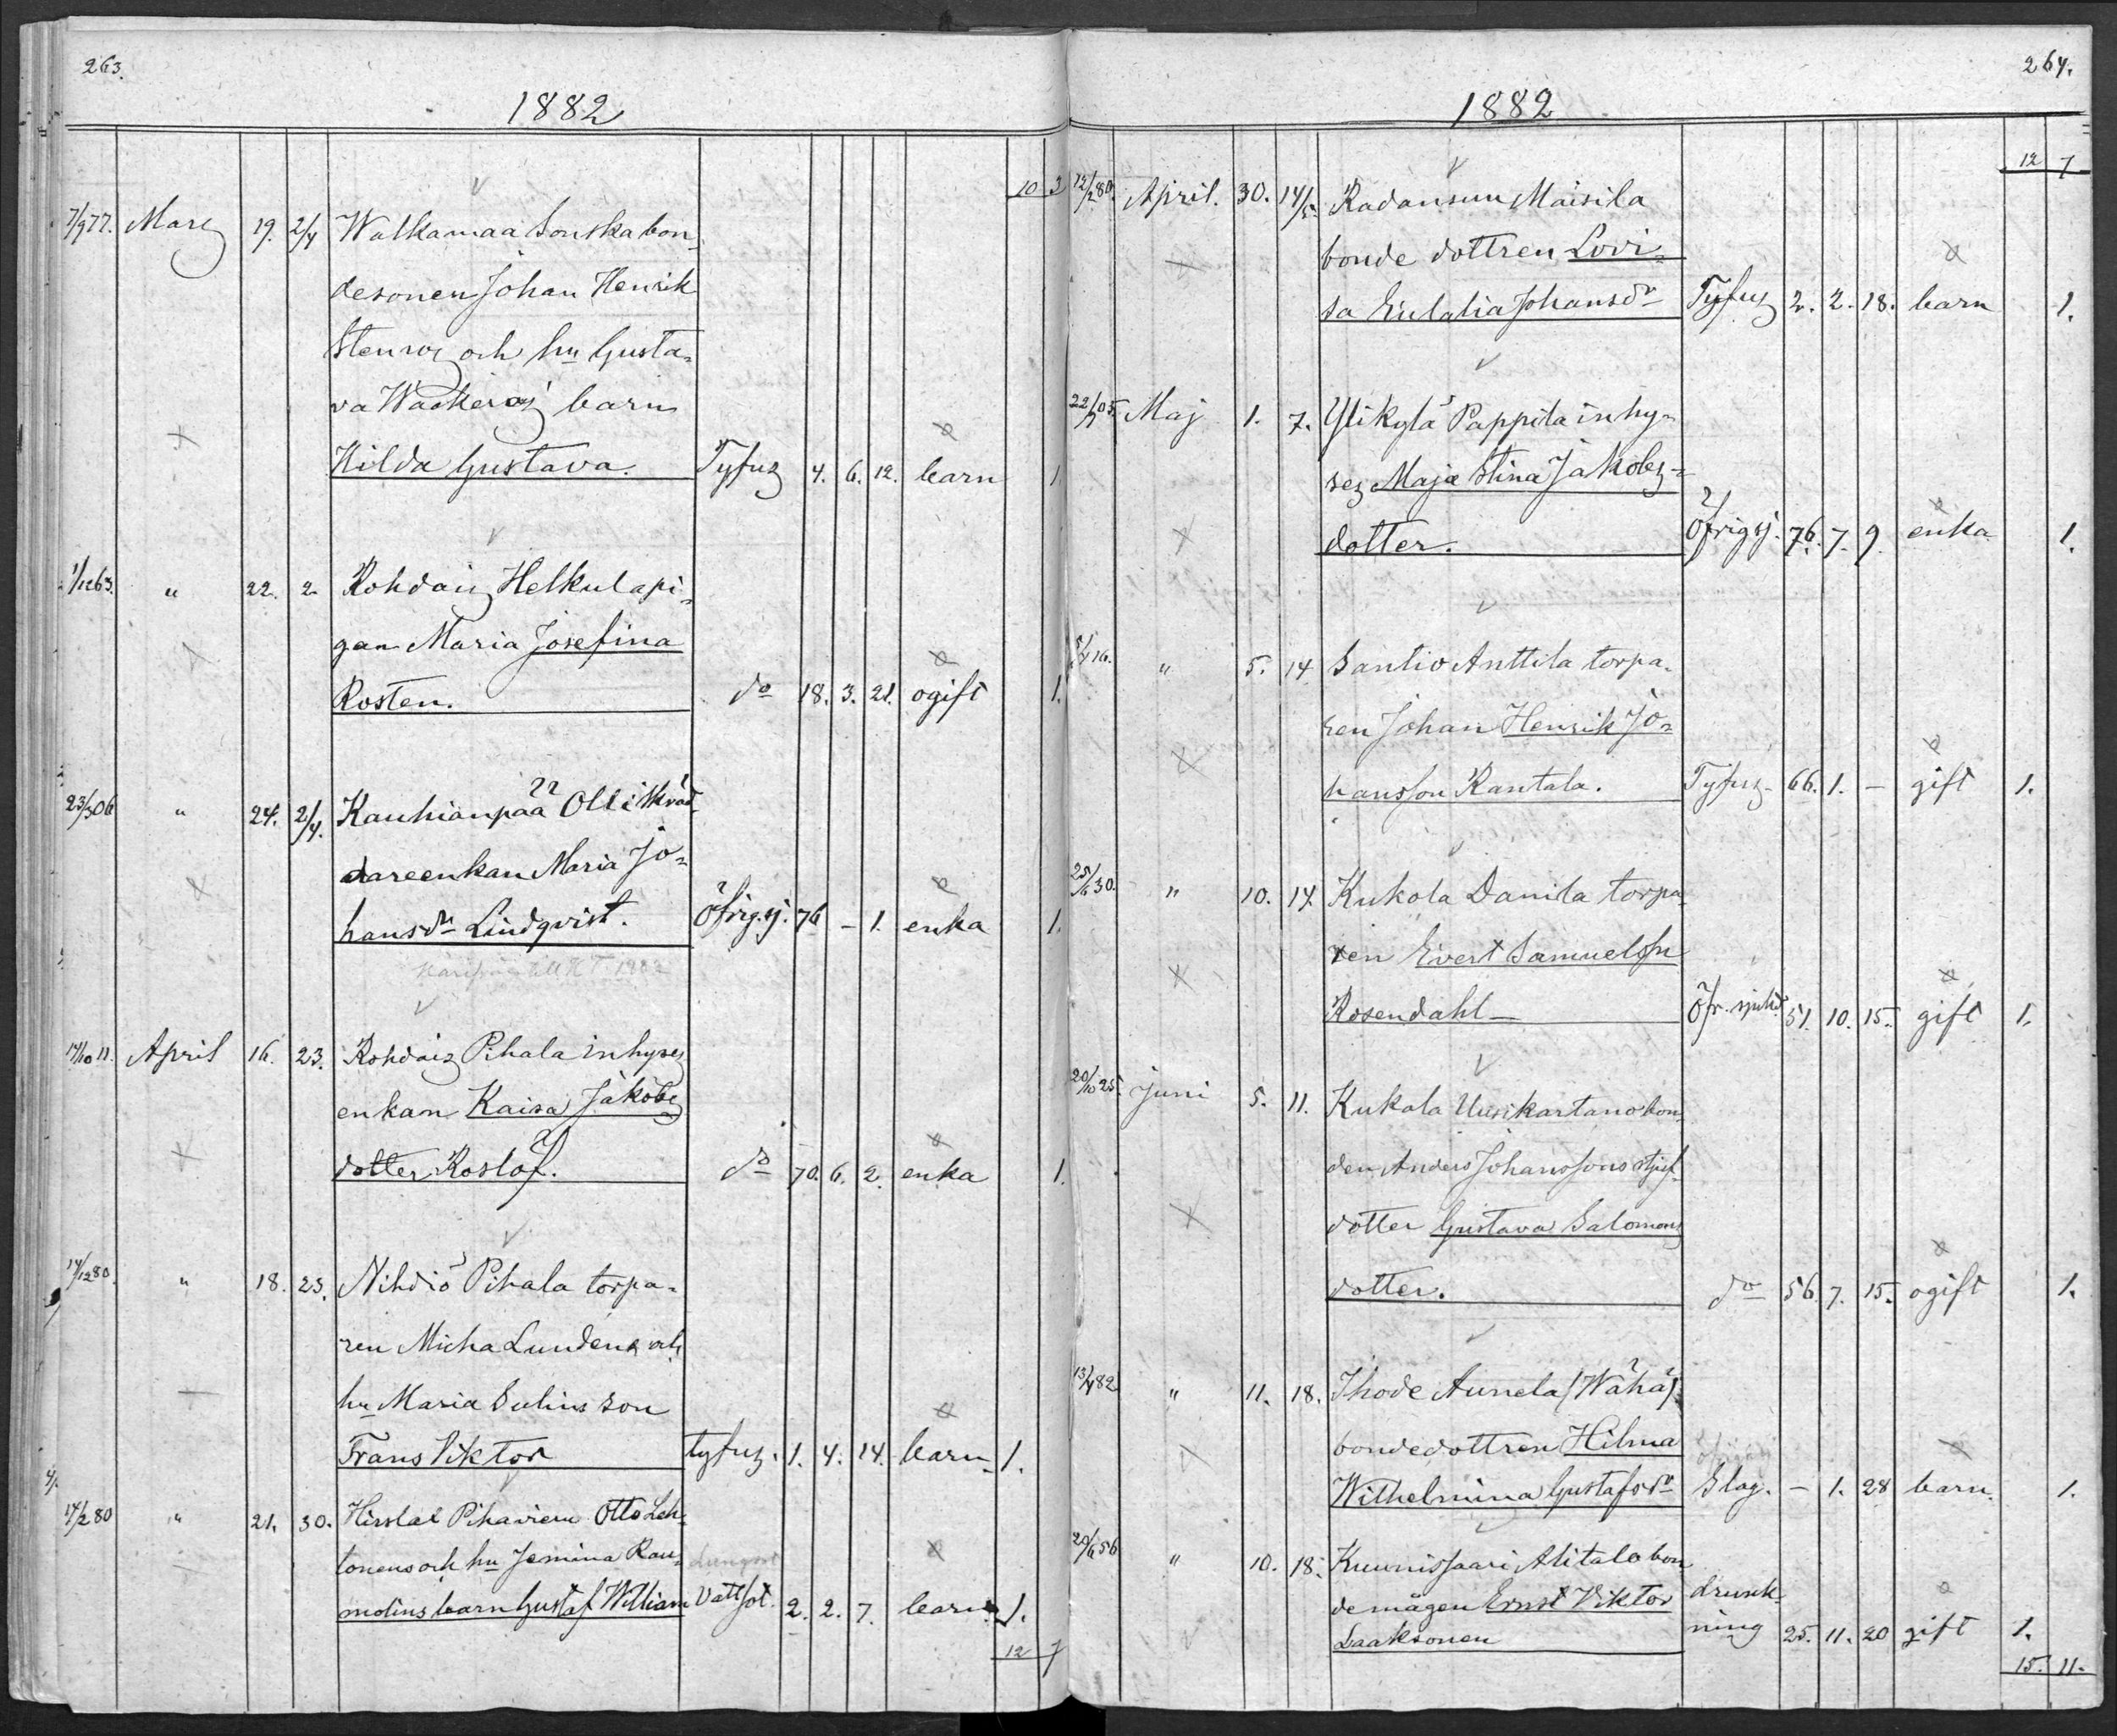 263.
1882
10 3
7/9 77. Mars 19. 2/4 Walkamaa Souska bon-
desonen Johan Henrik
Stenroos och hu Gusta-
va Wackeros barn
Hilda Gustava. Tyfus 4. 6. 12. barn 1
1/12 63. " 22. 2 Kohdais Helkula pi-
gan Maria Josefina
Rosten. do 18. 3. 21. ogift 1.
23/3 06 " 24. 2/4. Kauhianpää Olli skräd-
dareenkan Maria Jo-
hansdr Lindqvist. Öfrig. sj. 76 - 1. enka 1.
17/10 11. April 16. 23. Kohdais Pihala inhyses
enkan Kaisa Jakobs
dotter Roslöf. do 70. 6. 2. enka 1.
14/12 80. " 18. 23. Nihdiö Pihala torpa-
ren Micha Lundens och
hu Maria Sulins son
Frans Viktor tyfus. 1. 4. 14. barn 1.
14/2 80 " 21. 30. Hirslal Pihavieru Otto Leh-
tonens och hu Jemina Rau-
molins barn Gustaf William Lungsot Vattsot. 2. 2. 7. barn 1.
12 7
264.
1882
12 7
12/2 80. April. 30. 14/5. Radansuu Maisila
bonde dottren Lovi-
sa Eulalia Johansdr Tyfus 2. 2. 18. barn 1.
22/9 05. Maj 1. 7. Ylikylä Pappila inhy-
ses Maja Stina Jakobs-
dotter. Öfrig sj. 76. 7. 9. enka 1.
5/4 16. " 5. 14 Santio Anttila torpa-
ren Johan Henrik Jo-
hansson Rantala. Tyfus 66. 1. - gift 1.
25/6 30. " 10. 14. Kukola Danila torpa-
ren Evert Samuelssn
Rosendahl Öfr. sjukd. 51. 10. 15. gift 1.
20/10 25. Juni 5. 11. Kukola Uusikartano bon-
den Anders Johanssons stjuf-
dotter Gustava Salomons
dotter. do 56. 7. 15. ogift 1.
13/4 82 " 11. 18. Ihode Aunela (Wähä)
bondedottren Hilma
Wilhelmina Gustafsdr Slag. - 1. 28 barn. 1.
20/6 56 " 10. 18. Kuunissaari Alitalo bon
demågen Ernst Viktor drunk-
Laaksonen ning 25. 11. 20 gift 1.
15. 11.